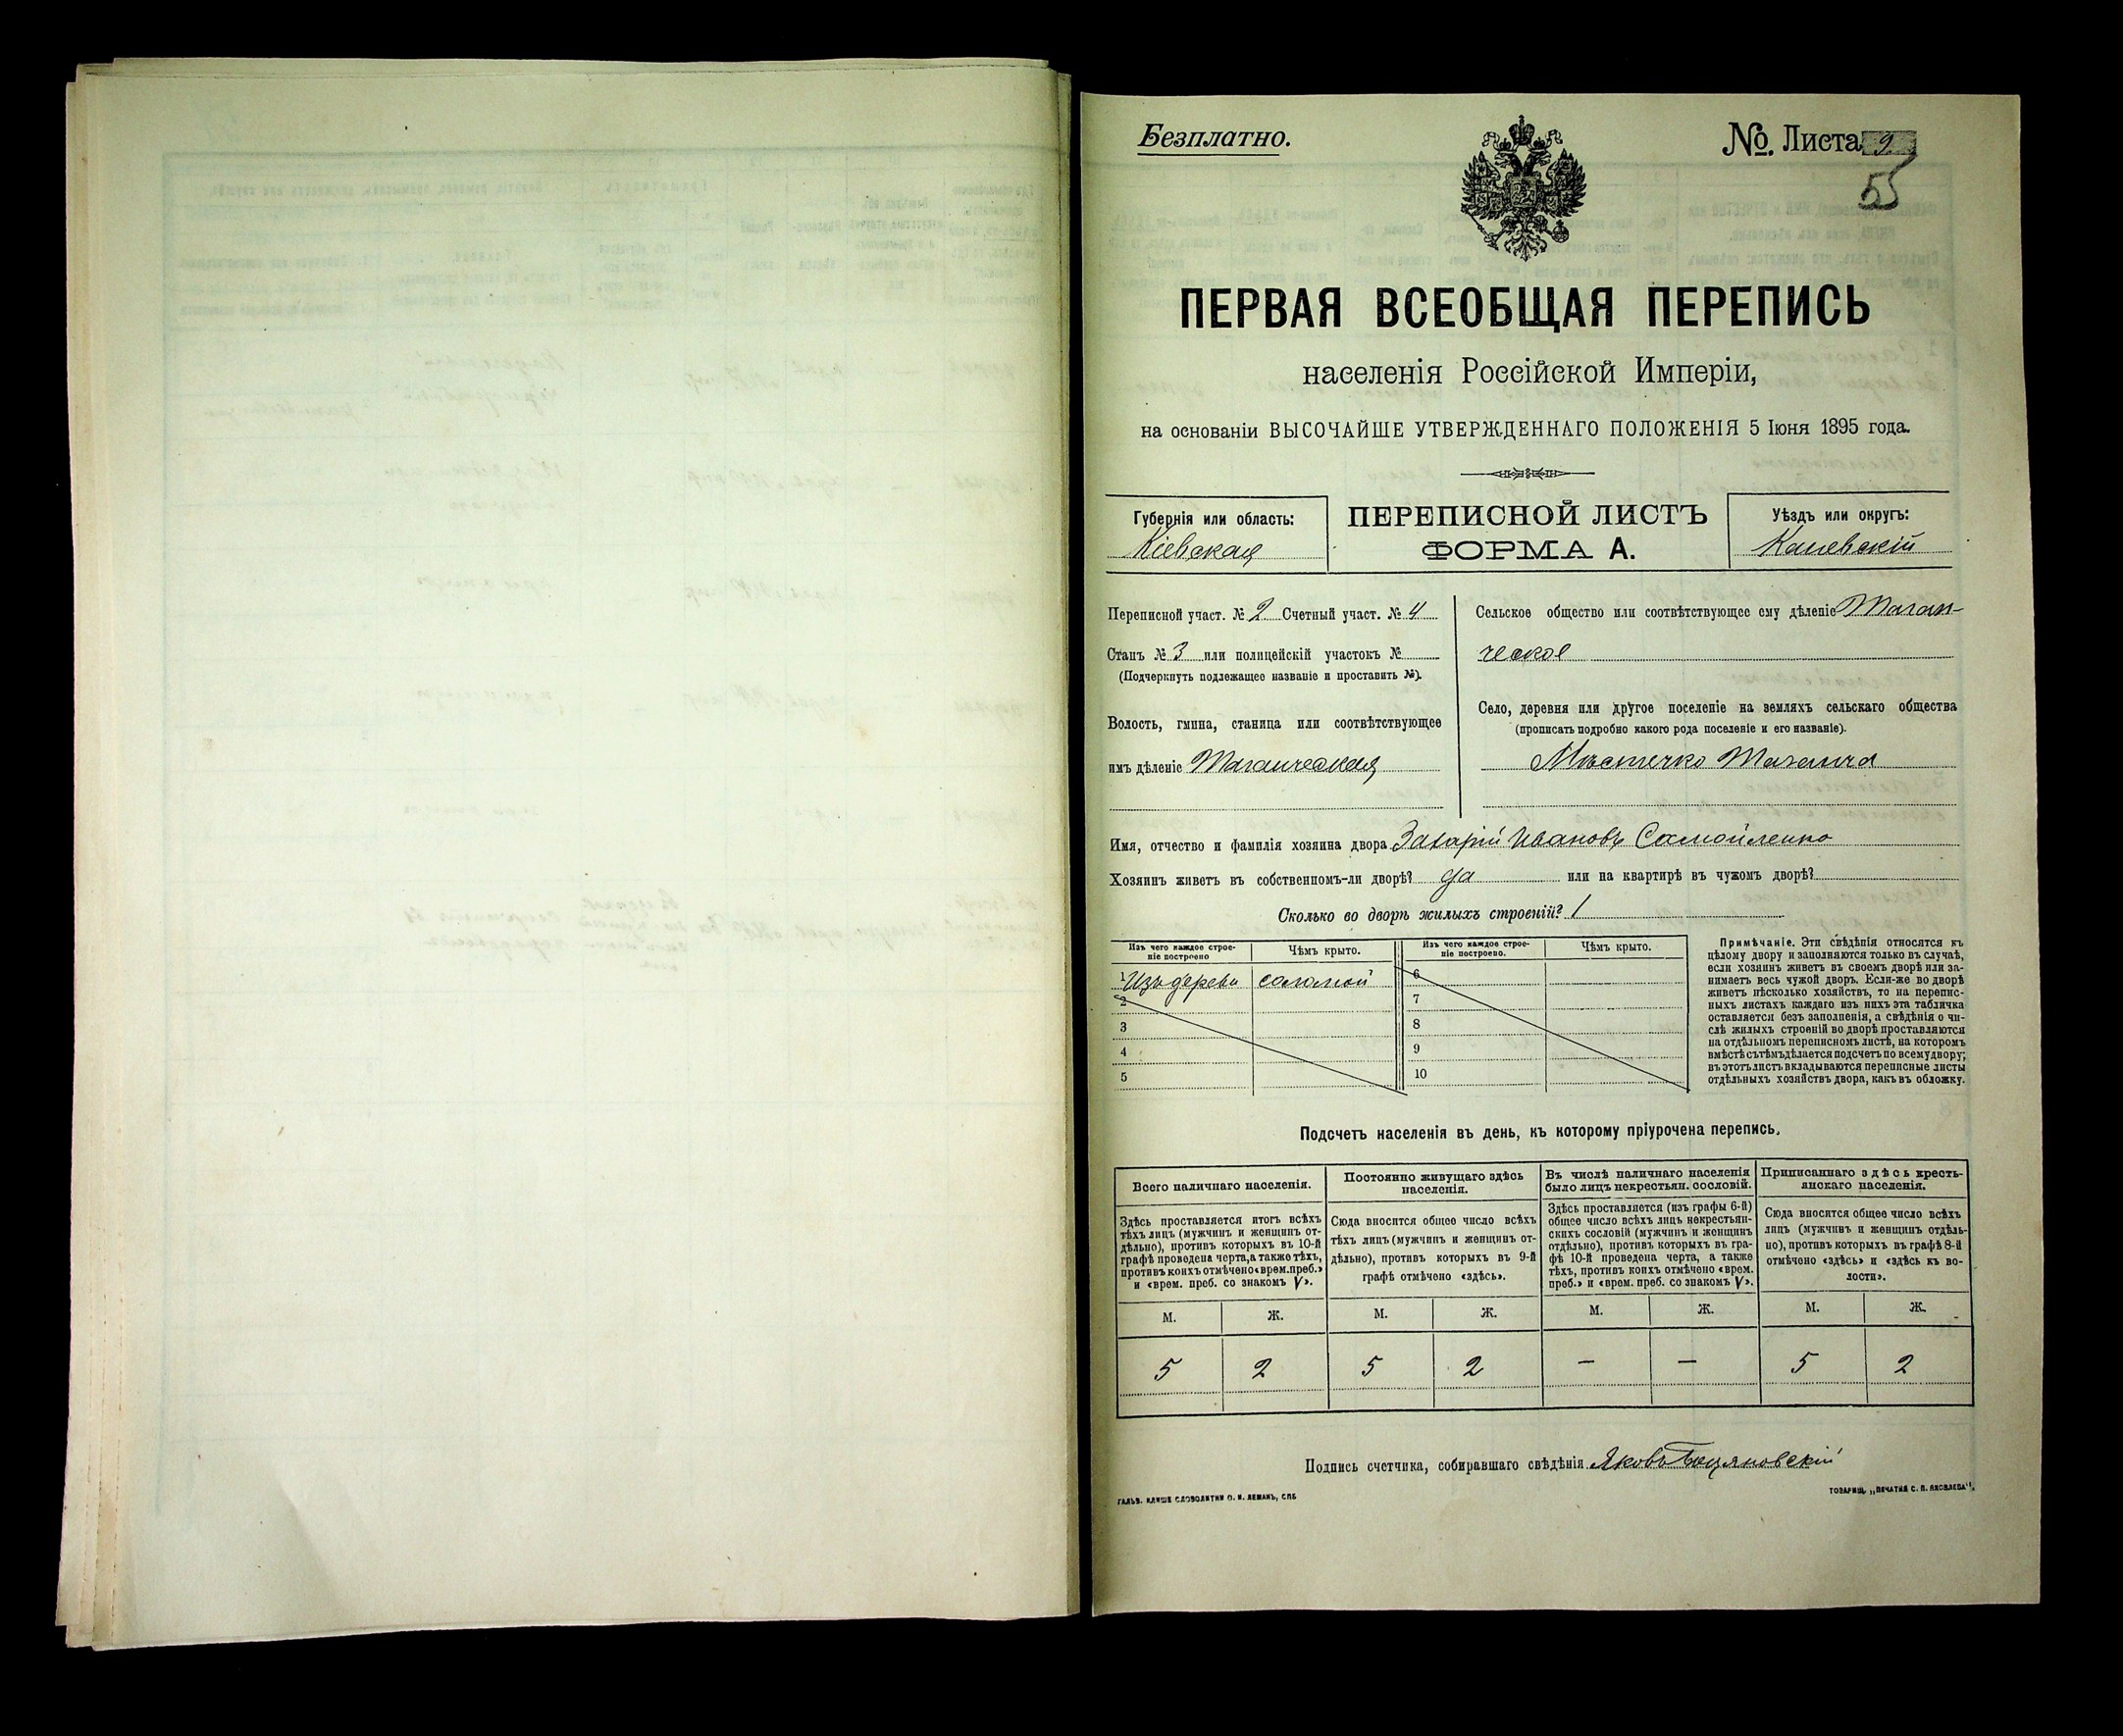 Безплатно.
№. Листа 9
55
ПЕРВАЯ ВСЕОБЩАЯ ПЕРЕПИСЬ
населенія Россійской Имперіи,
на основаніи ВЫСОЧАЙШЕ УТВЕРЖДЕННАГО ПОЛОЖЕНІЯ 5 Іюня 1895 года.
Губернія или область:
Кіевская
ПЕРЕПИСНОЙ ЛИСТЪ
ФОРМА А.
Уѣздъ или округъ:
Каневскій
Переписной участ. № 2 Счетный участ. № 4
Станъ № 3 или полицейскій участокъ №
(Подчеркнуть подлежащее названіе и проставить №).
Волость, гмина, станица или соотвѣтствующее
имъ дѣленіе Таганческая
Сельское общество или соотвѣтствующее ему дѣленіе Таган-
ческое
Село, деревня или другое поселеніе на земляхъ сельскаго общества
(прописать подробно какого рода поселеніе и его названіе).
Мѣстечко Таганча
Имя, отчество и фамилія хозяина двора Захарій Ивановъ Самойленко
Хозяинъ живетъ въ собственномъ-ли дворѣ? да или на квартирѣ въ чужомъ дворѣ?
Сколько во дворѣ жилыхъ строеній? 1
Изъ чего каждое строе-
ніе построено
Чѣмъ крыто.
Изъ чего каждое строе-
ніе построено.
Чѣмъ крыто.
1 Изъ дерева соломой
2
3
4
5
6
7
8
9
10
Примѣчаніе. Эти свѣдѣнія относятся къ
цѣлому двору и заполняются только въ случаѣ,
если хозяинъ живетъ въ своемъ дворѣ или за-
нимаетъ весь чужой дворъ. Если-же во дворѣ
живетъ нѣсколько хозяйствъ, то на перепис-
ныхъ листахъ каждаго изъ нихъ эта табличка
оставляется безъ заполненія, а свѣдѣнія о чи-
слѣ жилыхъ строеній во дворѣ проставляются
на отдѣльномъ переписномъ листѣ, на которомъ
вмѣстѣ съ тѣмъ дѣлается подсчетъ по всему двору;
въ этотъ листъ вкладываются переписные листы
отдѣльныхъ хозяйствъ двора, какъ въ обложку.
Подсчетъ населенія въ день, къ которому пріурочена перепись.
Всего наличнаго населенія.
Постоянно живущаго здѣсь
населенія.
Въ числѣ наличнаго населенія
было лицъ некрестьян. сословій.
Приписаннаго здѣсь кресть-
янскаго населенія.
Здѣсь проставляется итогъ всѣхъ
тѣхъ лицъ (мужчинъ и женщинъ от-
дѣльно), противъ которыхъ въ 10-й
графѣ проведена черта, а также тѣхъ,
противъ коихъ отмѣчено «врем. преб.»
и «врем. преб. со знакомъ V».
Сюда вносится общее число всѣхъ
тѣхъ лицъ (мужчинъ и женщинъ от-
дѣльно), противъ которыхъ въ 9-й
графѣ отмѣчено «здѣсь».
Здѣсь проставляется (изъ графы 6-й)
общее число всѣхъ лицъ некрестьян-
скихъ сословій (мужчинъ и женщинъ
отдѣльно), противъ которыхъ въ гра-
фѣ 10-й проведена черта, а также
тѣхъ, противъ коихъ отмѣчено «врем.
преб.» и «врем. преб. со знакомъ V».
Сюда вносится общее число всѣхъ
лицъ (мужчинъ и женщинъ отдѣль-
но), противъ которыхъ въ графѣ 8-й
отмѣчено «здѣсь» и «здѣсь къ во-
лости».
М. Ж. М. Ж. М. Ж. М. Ж.
5 2 5 2 — — 5 2
Подпись счетчика, собиравшаго свѣдѣнія Яковъ Боцяновскій
ГАЛЬВ. КЛИШЕ СЛОВОЛИТНИ О. И. ЛЕМАНЪ, СПБ
ТОВАРИЩ. „ПЕЧАТНЯ С. П. ЯКОВЛЕВА".